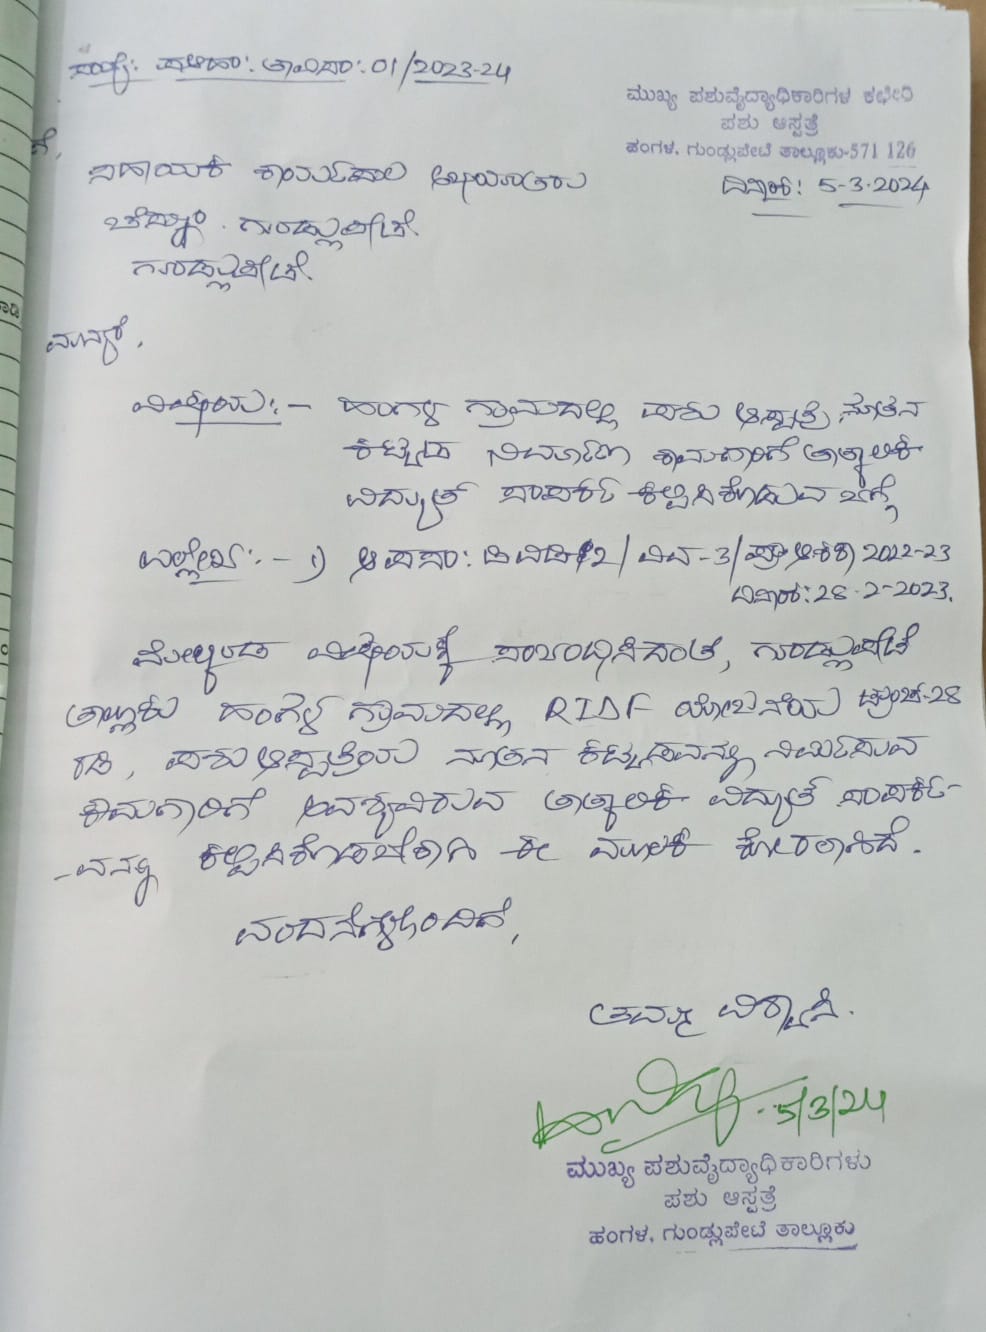 ಸಂಖ್ಯೆ: ಪಆಹಂ: ತಾವಿಸಂ: 01/2023-24
ಮುಖ್ಯ ಪಶುವೈದ್ಯಾಧಿಕಾರಿಗಳ ಕಛೇರಿ
ಪಶು ಆಸ್ಪತ್ರೆ
ಹಂಗಳ, ಗುಂಡ್ಲುಪೇಟೆ ತಾಲ್ಲೂಕು-571 126
ದಿನಾಂಕ: 5-3-2024
ಗೆ,
ಸಹಾಯಕ ಕಾರ್ಯಪಾಲ ಅಭಿಯಂತರರು
ಚೆಸ್ಕಾಂ. ಗುಂಡ್ಲುಪೇಟೆ.
ಗುಂಡ್ಲುಪೇಟೆ.
ಮಾನ್ಯರೆ,
ವಿಷಯ:- ಹಂಗಳ ಗ್ರಾಮದಲ್ಲಿ ಪಶು ಆಸ್ಪತ್ರೆ ನೂತನ
ಕಟ್ಟಡ ನಿರ್ಮಾಣ ಕಾಮಗಾರಿಗೆ ತಾತ್ಕಾಲಿಕ
ವಿದ್ಯುತ್ ಸಂಪರ್ಕ ಕಲ್ಪಿಸಿಕೊಡುವ ಬಗ್ಗೆ
ಉಲ್ಲೇಖ:- 1) ಆಪಸಂ: 2022-23
ದಿನಾಂಕ: 28-2-2023.
ಮೇಲ್ಕಂಡ ವಿಷಯಕ್ಕೆ ಸಂಬಂಧಿಸಿದಂತೆ, ಗುಂಡ್ಲುಪೇಟೆ
ತಾಲ್ಲೂಕು ಹಂಗಳ ಗ್ರಾಮದಲ್ಲಿ RIDF ಯೋಜನೆಯ ಟ್ರಂಚ್-28
ರಡಿ, ಪಶು ಆಸ್ಪತ್ರೆಯ ನೂತನ ಕಟ್ಟಡವನ್ನು ನಿರ್ಮಿಸುವ
ಕಾಮಗಾರಿಗೆ ಅವಶ್ಯವಿರುವ ತಾತ್ಕಾಲಿಕ ವಿದ್ಯುತ್ ಸಂಪರ್ಕ-
-ವನ್ನು ಕಲ್ಪಿಸಿಕೊಡಬೇಕಾಗಿ ಈ ಮೂಲಕ ಕೋರಲಾಗಿದೆ.
ವಂದನೆಗಳೊಂದಿಗೆ,
ತಮ್ಮ ವಿಶ್ವಾಸಿ.
5/3/24
ಮುಖ್ಯ ಪಶುವೈದ್ಯಾಧಿಕಾರಿಗಳು
ಪಶು ಆಸ್ಪತ್ರೆ
ಹಂಗಳ, ಗುಂಡ್ಲುಪೇಟೆ ತಾಲ್ಲೂಕು